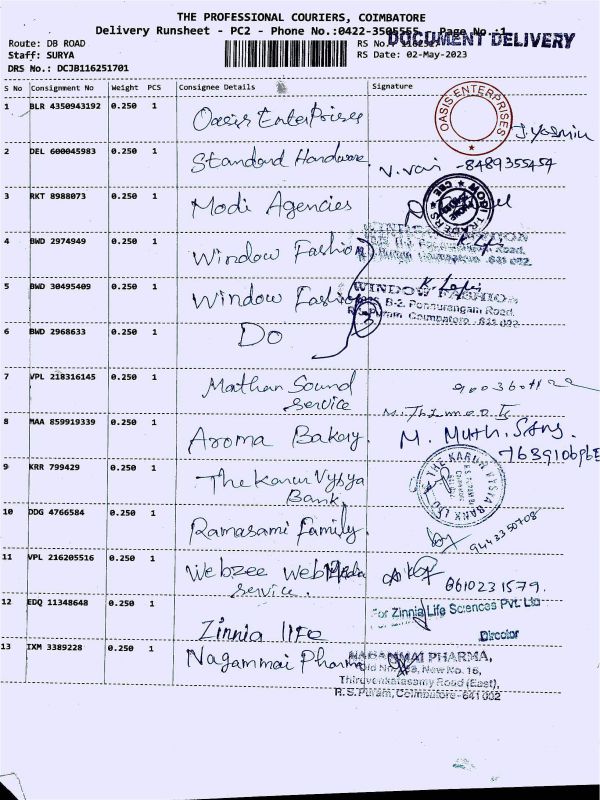 THE PROFESSIONAL COURIERS, COIMBATORE
Delivery Runsheet - PC2 - Phone No.:0422-3505555 Page No.:1
DOCUMENT DELIVERY
Route: DB ROAD
RS No.:
Staff: SURYA
RS Date: 02-May-2023
DRS No.: DCJB116251701
S No Consignment No Weight PCS Consignee Details Signature
1 BLR 4350943192 0.250 1 Oasis Enterprises OASIS ENTERPRISES J.Yasmin
2 DEL 600045983 0.250 1 Standard Hardware. -8489355454
3 RKT 8988073 0.250 1 Modi Agencies MODI TRADERS CBE
4 BWD 2974949 0.250 1 Window Fashion WINDOW FASHION
Ponnurangam Road,
R.S. Puram, Coimbatore - 641 002.
5 BWD 30495409 0.250 1 Window Fashion WINDOW FASHION
B-2, Ponnurangam Road,
R.S. Puram, Coimbatore - 641 002
6 BWD 2968633 0.250 1 Do 3
7 VPL 218316145 0.250 1 Mathan Sound
Service
8 MAA 859919339 0.250 1 Aroma Bakery.
9 KRR 799429 0.250 1 The Karur Vysya
Bank. THE KARUR VYSYA BANK LTD
10 DDG 4766584 0.250 1 Ramasami Family. 9443350708
11 VPL 216205516 0.250 1 Webzee Web Media
Service.
12 EDQ 11348648 0.250 1 Zinnia life For Zinnia Life Sciences Pvt. Ltd
Director
13 IXM 3389228 0.250 1 Nagammai Pharma NAGAMMAI PHARMA,
New No. 16,
Thiruvenkatasamy Road (East),
R.S. Puram, Coimbatore - 641 002